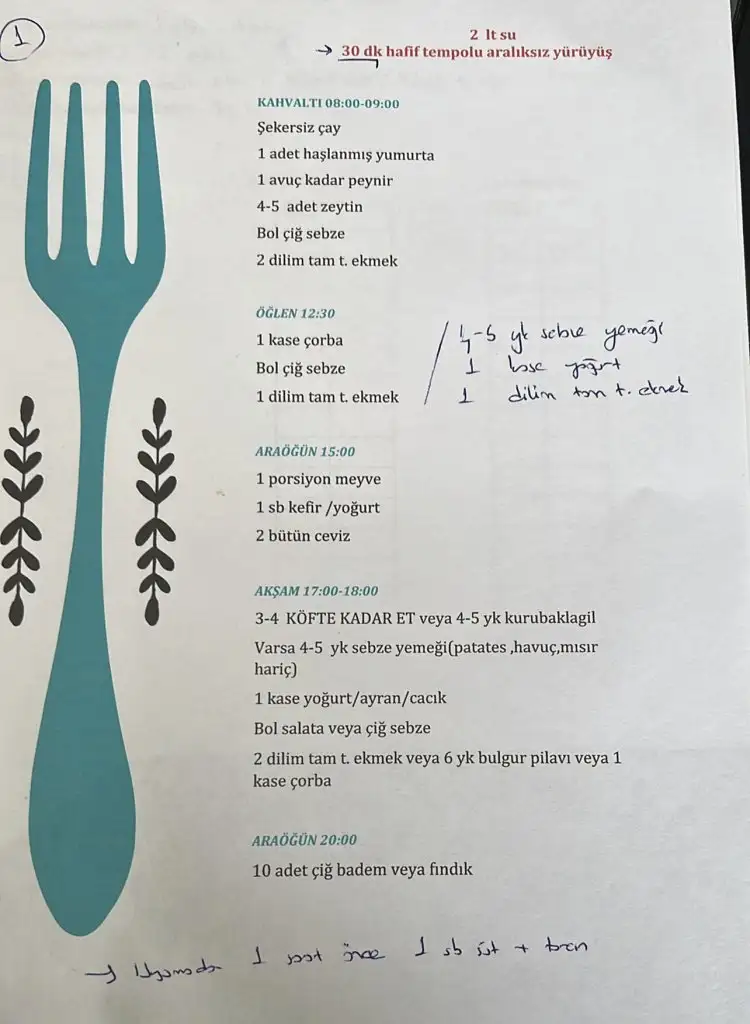 1
2 lt su
→ 30 dk hafif tempolu aralıksız yürüyüş
KAHVALTI 08:00-09:00
Şekersiz çay
1 adet haşlanmış yumurta
1 avuç kadar peynir
4-5 adet zeytin
Bol çiğ sebze
2 dilim tam t. ekmek
ÖĞLEN 12:30
1 kase çorba
Bol çiğ sebze
1 dilim tam t. ekmek
/ 4-5 yk sebze yemeği
1 kase yoğurt
1 dilim tam t. ekmek
ARAÖĞÜN 15:00
1 porsiyon meyve
1 sb kefir /yoğurt
2 bütün ceviz
AKŞAM 17:00-18:00
3-4 KÖFTE KADAR ET veya 4-5 yk kurubaklagil
Varsa 4-5 yk sebze yemeği(patates ,havuç,mısır
hariç)
1 kase yoğurt/ayran/cacık
Bol salata veya çiğ sebze
2 dilim tam t. ekmek veya 6 yk bulgur pilavı veya 1
kase çorba
ARAÖĞÜN 20:00
10 adet çiğ badem veya fındık
→ 1 saat önce 1 sb süt +